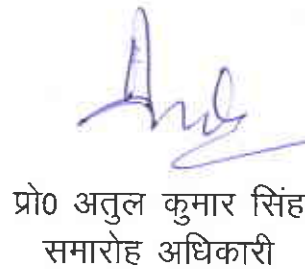 प्रो0 अतुल कुमार सिंह
समारोह अधिकारी